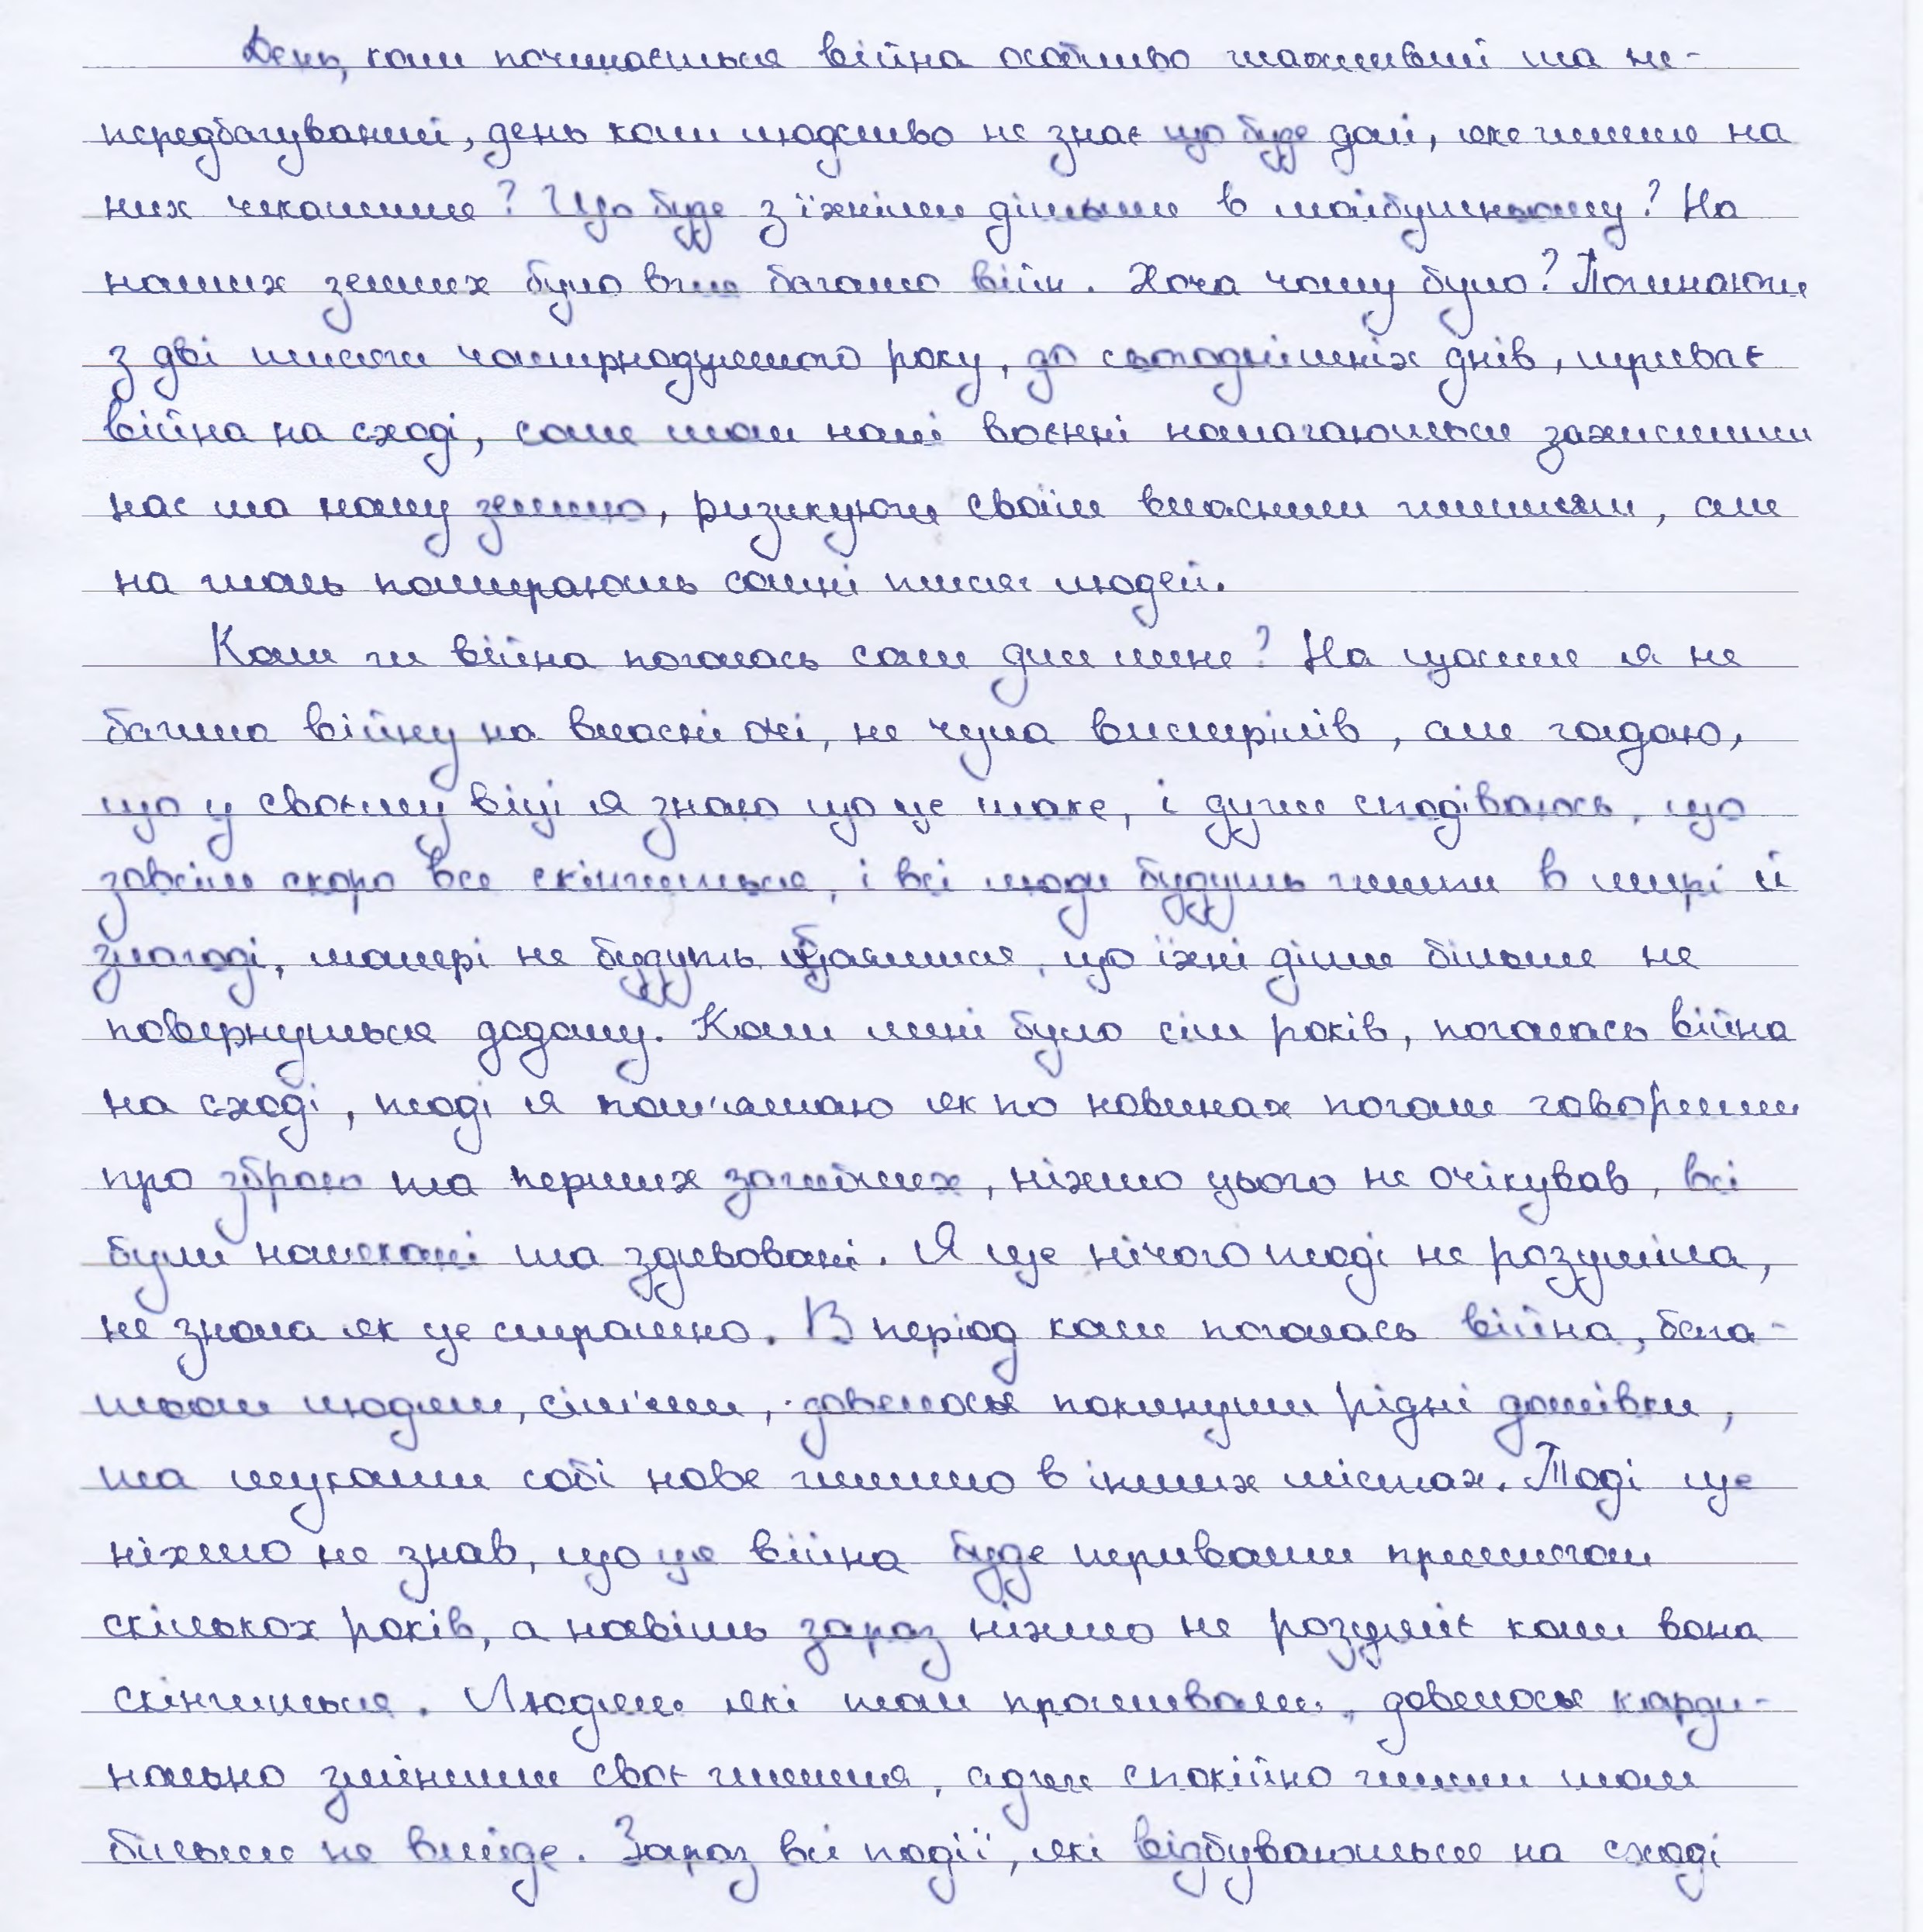 День, коли починається війна особливо важливий та не-
передбачуваний, день коли людство не знає що буде далі, яке життя на
них чекатиме? Що буде з їхніми дітьми в майбутньому? На
наших землях було вже багато війн. Хоча чому було? Починаючи
з дві тисячі чотирнадцятого року, до сьогоднішніх днів, триває
війна на сході, саме там наші воєнні намагаються захистити
нас та нашу землю, ризикуючи своїм власним життям, але
на жаль помирають сотні тисяч людей.
Коли ж війна почалась саме для мене? На щастя я не
бачила війну на власні очі, не чула вистрілів, але гадаю,
що у своєму віці я знаю що це таке, і дуже сподіваюсь, що
зовсім скоро все скінчиться, і всі люди будуть жити в мирі й
злагоді, матері не будуть боятися, що їхні діти більше не
повернуться додому. Коли мені було сім років, почалась війна
на сході, тоді я пам'ятаю як по новинах почали говорити
про зброю та перших загиблих, ніхто цього не очікував, всі
були налякані та здивовані. Я ще нічого тоді не розуміла,
не знала як це страшно. В період коли почалась війна, бага-
тьом людям, сім'ям, довелося покинути рідні домівки,
та шукати собі нове житло в інших містах. Тоді ще
ніхто не знав, що ця війна буде тривати протягом
скількох років, а навіть зараз ніхто не розуміє коли вона
скінчиться. Людям які там проживали, довелося карди-
нально змінити своє життя, адже спокійно жити там
більше не вийде. Зараз всі події, які відбуваються на сході